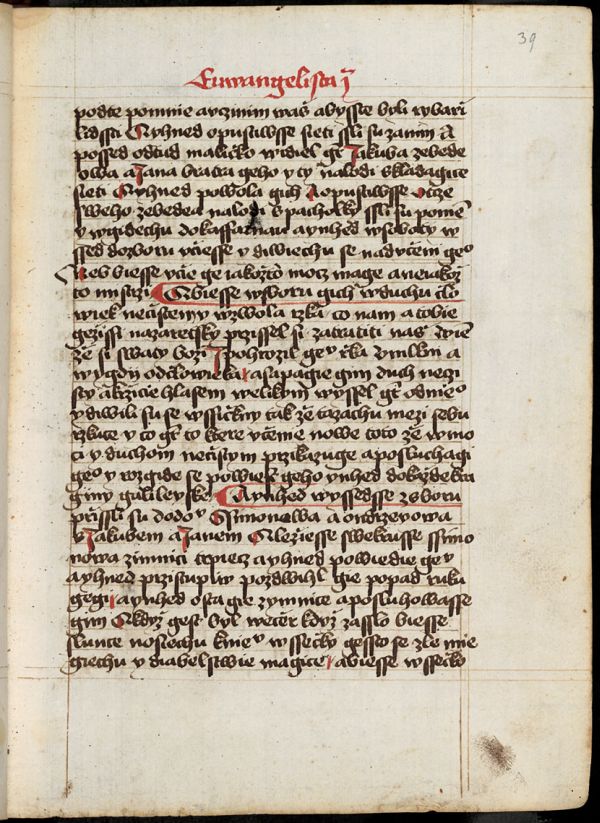 39
Euwangelista j
podte pomnie avczinim waś abysste byli rybarzi
lidssti A yhned opustiwsse sieti ssli su zanim A
possed odtud maliczko widiel gt Jakuba zebede
owa a Jana bratra geho y ty nalodi skladagice
sieti A yhned powola gich A opustiwsse otcze
sweho zebedea nalodi s pacholky ssli su ponem
y wgidechu do kafarnau a yhned w soboty w
ssed do zboru vcziesse y diwiechu se nad vczem geo
Neb biesse vcze ge iakozto mocz mage a neiakoz
to mistrzi A biesse w zboru gich w duchu czlo
wiek neczistemu wzwola rzka co nam a tobie
gezissi nazaretsky przissel si zatratiti nas wiem
ze si swaty bozi J pohrozil geu rzka vmlkni a
wygdi od czlowieka a lapagie gim duch neczi
sty a krziczie hlasem welikym wyssel gt od nieo
y diwili su se wssickny tak ze tazachu mezi sebu
rzkucz y co gt to ktere vczenie nowe toto ze w mo
ci y duchom neczistym przikazuge a posluchagi
geo y rozgide se powiest geho yhned do kazde kra
giny galileyske A yhned wyssedsse z zboru
przissli su do dou Ssimonowa a ondrzeyowa
s Jakubem a Janem A leziesse swekrusse ssimo
nowa zimnici trpiecz a yhned powiediechu geu
a yhned przistupiw pozdwihl gie popad ruku
gegi a yhned osta gie zymnice a posluhowasse
gim A kdyz gest byl weczer kdyz zasslo biesse
slunce nosiechu k nieu wssecky gessto se zle mie
giechu y diabelstwie magice a biesse wssecko